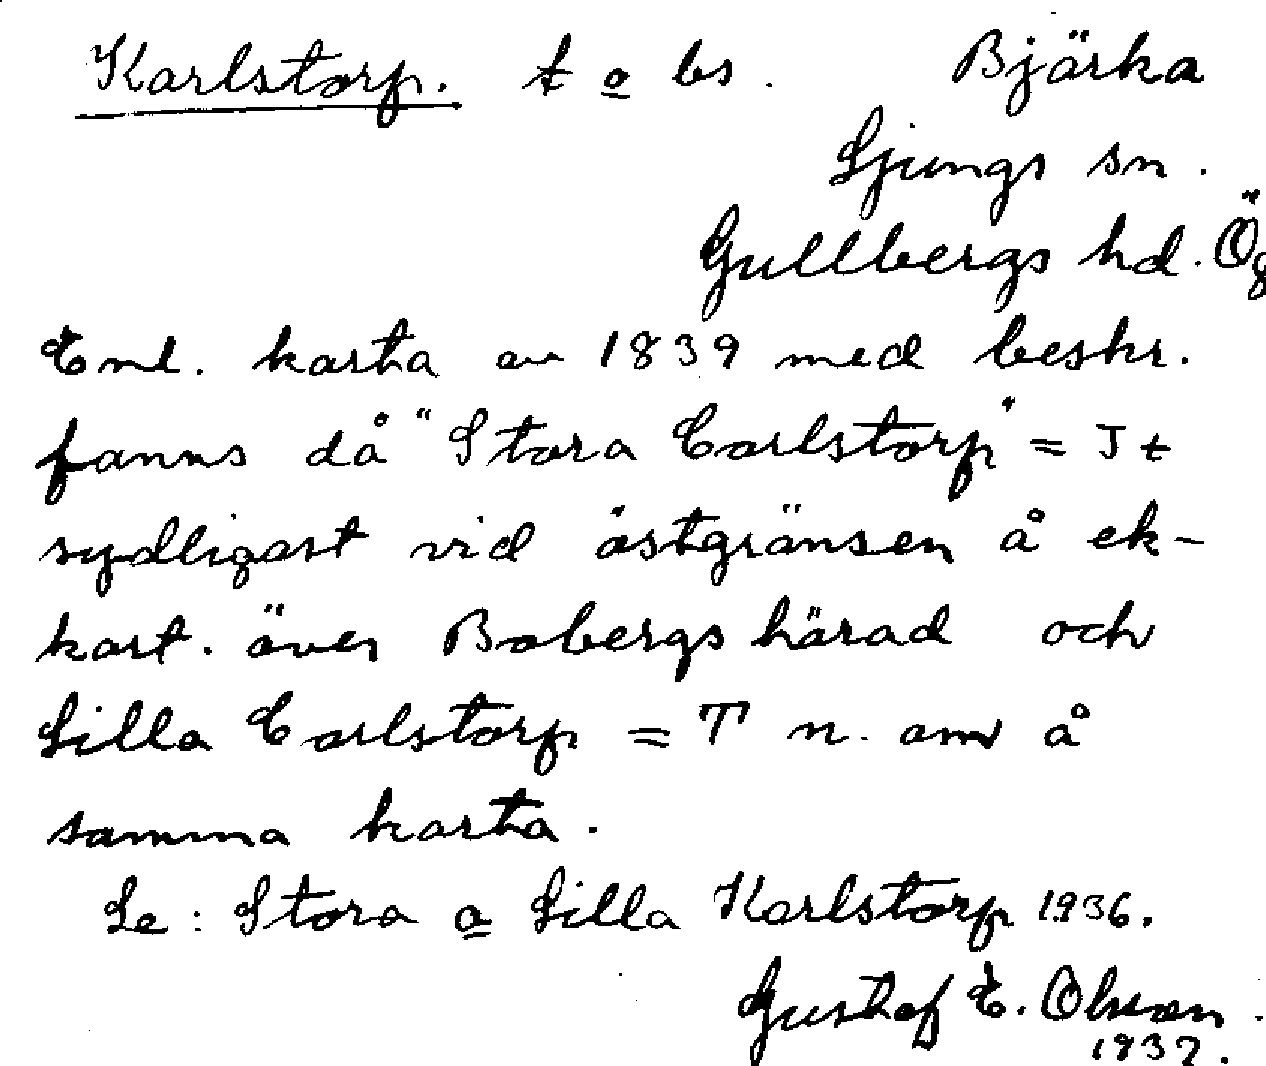 Karlstorp. t o bs. Bjärka
Ljungs sn.
Gullbergs hd. Ög
Enl. karta av 1839 med beskr.
fanns då "Stora Carlstorp" = J t
sydligast vid östgränsen å ek-
kart. över Bobergs härad och
Lilla Carlstorp = T n. om å
samma karta.
Se: Stora o Lilla Karlstorp 1936.
Gustaf E. Olsson.
1937.